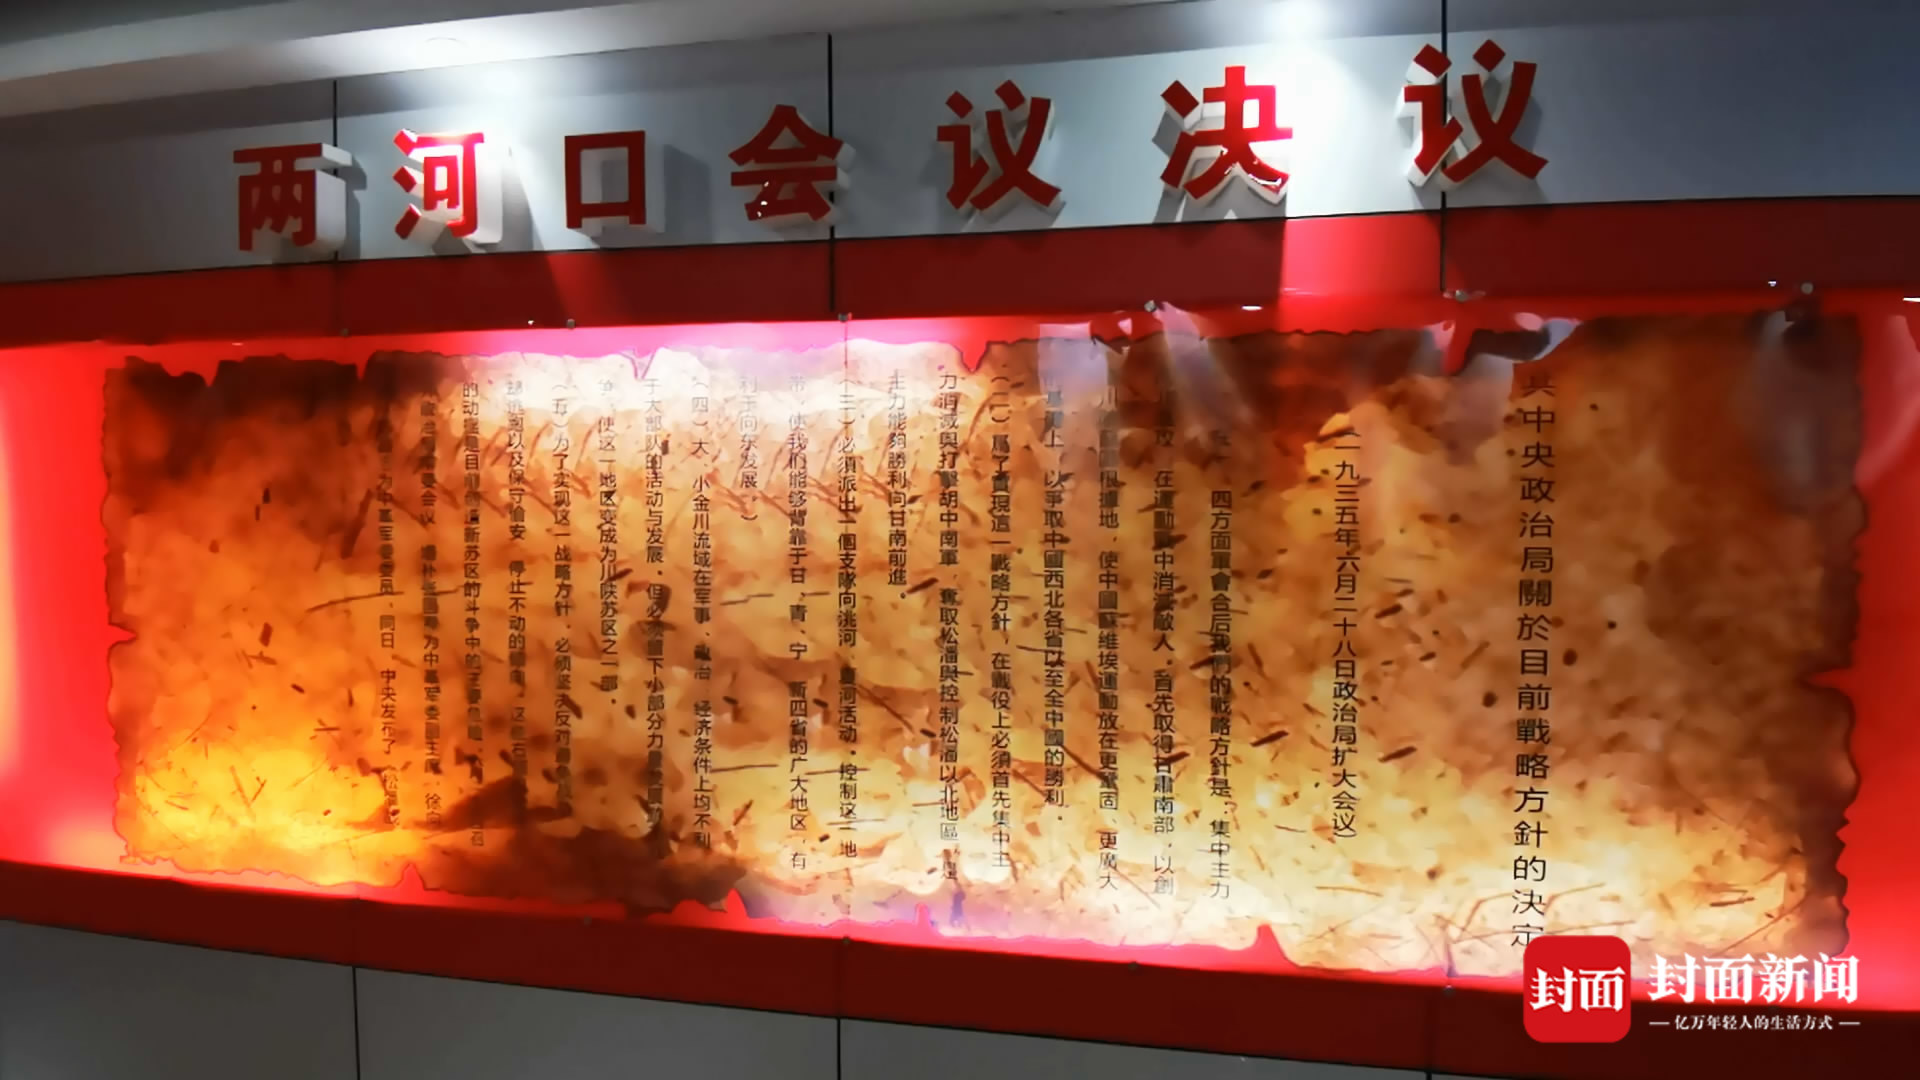 两河口会议决议
共中央政治局關於目前戰略方針的决定
(一九三五年六月二十八日政治局扩大会议)
四方面軍會合后我們的戰略方針是：集中主力
在運動戰中消滅敵人，首先取得甘肅南部，以創
根據地，使中國蘇維埃運動放在更鞏固、更廣大
基礎上，以爭取中國西北各省以至全中國的勝利。
(二)為了實現這一戰略方針，在戰役上必須首先集中主
力消滅與打擊胡中南軍，奪取松潘與控制松潘以北地區，
主力能夠勝利向甘南前進。
(三)必須派出一個支隊向洮河、夏河活动，控制这一地
带，使我们能够背靠于甘、青、宁、新四省的广大地区，有
利于向东发展。
(四)大、小金川流域在军事、政治、经济条件上均不利
于大部队的活动与发展。但必须留下小部分力量
使这一地区变成为川陕苏区之一部。
(五)为了实现这一战略方针，必须坚决反对
逃跑以及保守偷安、停止不动的倾向，这
的动摇是目前创造新苏区的斗争中的主要危险。
会议，增补张国焘为中革军委副主席，徐向
为中革军委委员。同日，中央发布了《松潘战
封面
封面新闻
亿万年轻人的生活方式